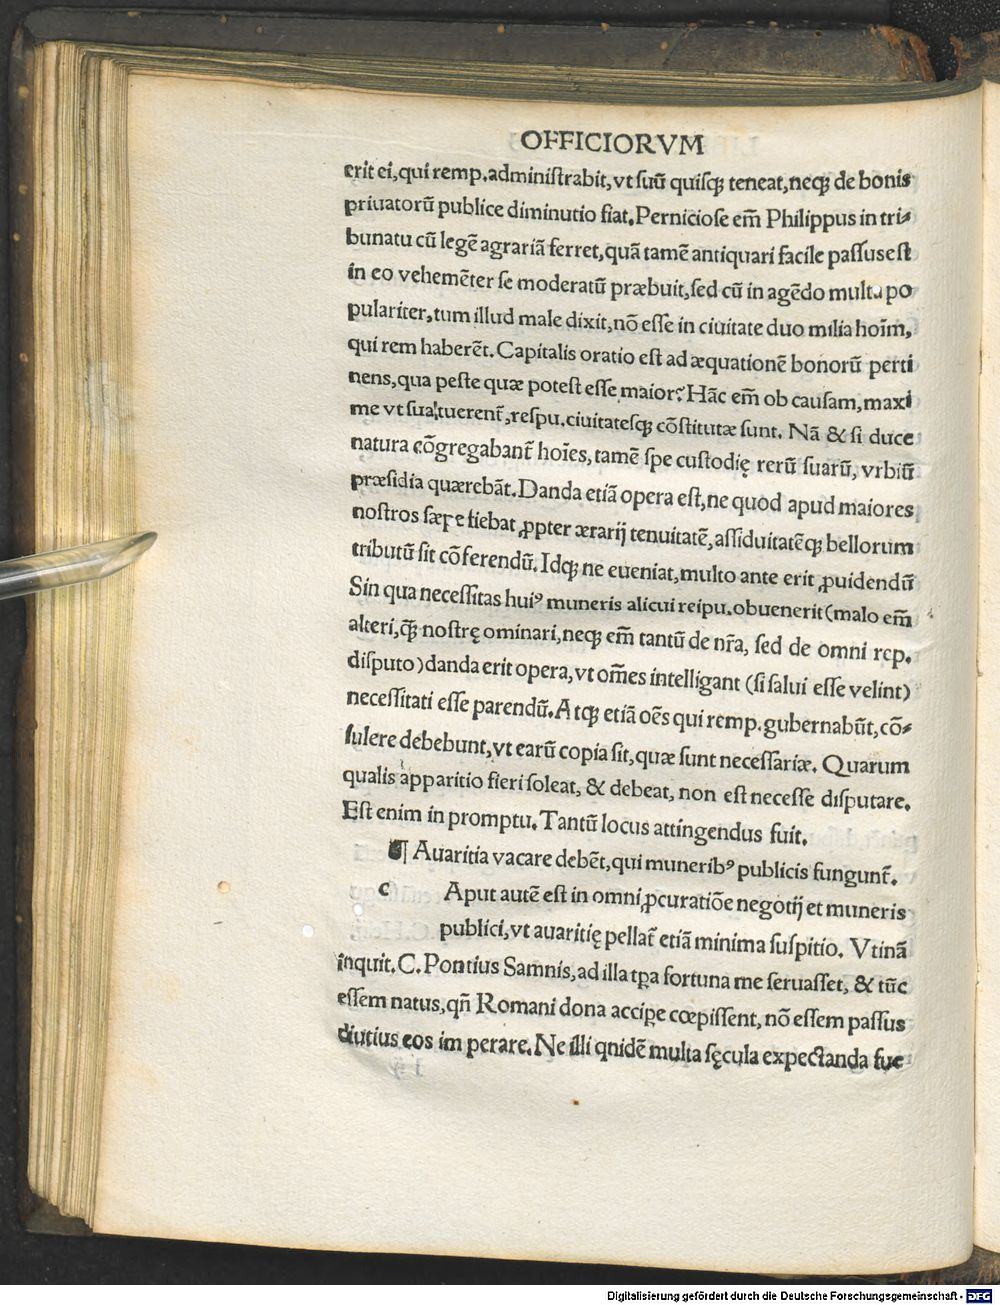 OFFICIORVM
erit ei,qui remp.administrabit,vt suũ quisqꝫ teneat,neqꝫ de bonis
priuatorũ publice diminutio fiat.Perniciose em̃ Philippus in tri⸗
bunatu cũ legẽ agrariã ferret,quã tamẽ antiquari facile passus est
in eo vehemẽter se moderatũ præbuit,sed cũ in agẽdo multa po
pulariter,tum illud male dixit,nõ esse in ciuitate duo milia hoĩm,
qui rem haberẽt.Capitalis oratio est ad æquationẽ bonorũ perti
nens,qua peste quæ potest esse maior?Hãc em̃ ob causam,maxi
me vt sua tuerent̃,respu.ciuitatesqꝫ cõstitutæ sunt. Nã & si duce
natura cõgregabant̃ hoĩes,tamẽ spe custodię rerũ suarũ, vrbiũ
præsidia quærebãt.Danda etiã opera est,ne quod apud maiores
nostros sæpe fiebat ꝓpter ærarij tenuitatẽ,assiduitatẽqꝫ bellorum
tributũ sit cõferendũ.Idqꝫ ne eueniat,multo ante erit ꝓuidendũ
Sin qua necessitas huiꝰ muneris alicui reipu.obuenerit(malo em̃
alteri,q̃ꝫ nostrę ominari,neqꝫ em̃ tantũ de nr̃a, sed de omni rep.
disputo)danda erit opera,vt om̃es intelligant (si salui esse velint)
necessitati esse parendũ.Atqꝫ etiã oẽs qui remp.gubernabũt,cõ⸗
sulere debebunt,vt earũ copia sit,quæ sunt necessariæ. Quarum
qualis apparitio fieri soleat, & debeat, non est necesse disputare.
Est enim in promptu.Tantũ locus attingendus fuit.
¶ Auaritia vacare debẽt,qui muneribꝰ publicis fungunt̃.
c Aput autẽ est in omni ꝓcuratiõe negotij et muneris
publici,vt auaritię pellat̃ etiã minima suspitio. Vtinã
inquit.C.Pontius Samnis,ad illa tꝑa fortuna me seruasset, & tũc
essem natus,qñ Romani dona acciꝑe cœpissent,nõ essem passus
diutius eos im perare.Ne illi qnidẽ multa sęcula expectanda fue
Digitalisierung gefördert durch die Deutsche Forschungsgemeinschaft - DFG